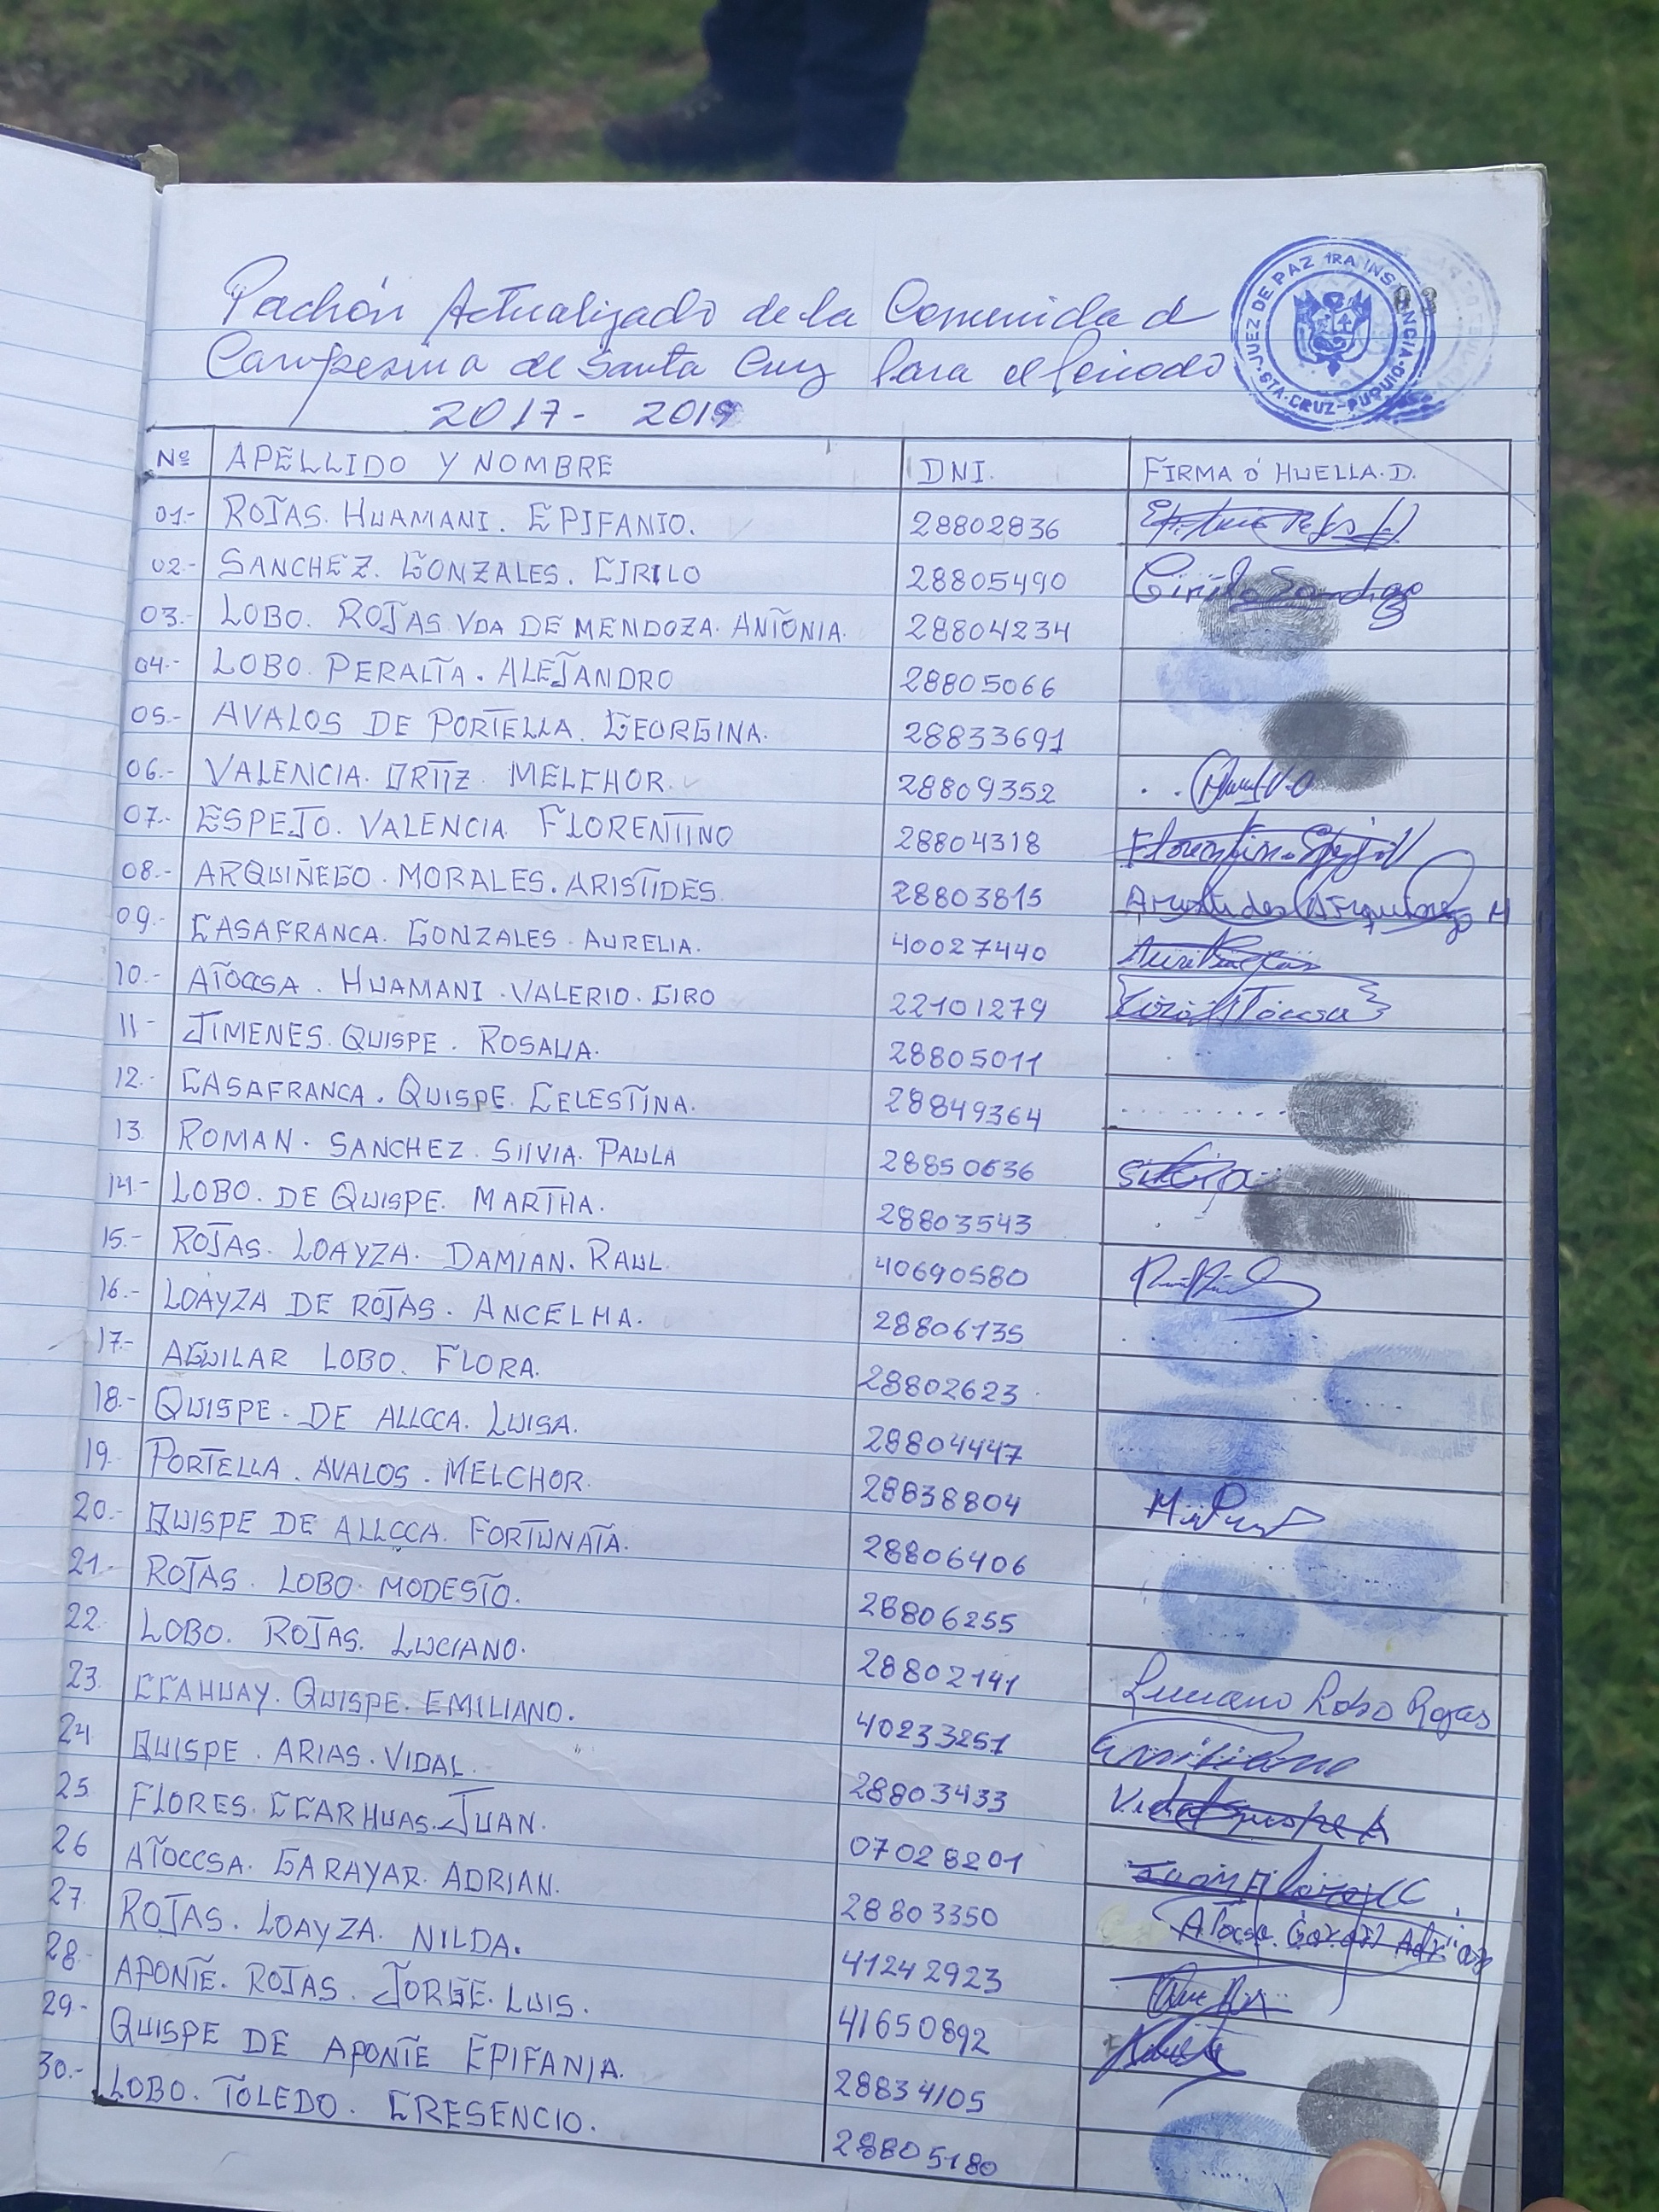 Pachón Actualizado de la Comunidad
Campesina de Santa Cruz Para el Periodo
2017 - 2019
JUEZ DE PAZ 1RA INSTANCIA
STA. CRUZ - PUQUIO
Nº APELLIDO Y NOMBRE DNI. FIRMA Ó HUELLA. D.
01.- ROJAS. HUAMANI. EPIFANIO. 28802836
02.- SANCHEZ. GONZALES. CIRILO 28805490 Cirilo Sanchez
03.- LOBO. ROJAS VDA DE MENDOZA. ANTONIA. 28804234
04.- LOBO. PERALTA. ALEJANDRO 28805066
05.- AVALOS DE PORTELLA. GEORGINA. 28833691
06.- VALENCIA. ORTIZ. MELCHOR. 28809352
07.- ESPEJO. VALENCIA FLORENTINO 28804318 Florentino Espejo V
08.- ARQUIÑEGO. MORALES. ARISTIDES. 28803815 Aristides Arquiñego M
09.- CASAFRANCA. GONZALES. AURELIA. 40027440
10.- ATOCCSA. HUAMANI. VALERIO. CIRO 22101279
11- JIMENES. QUISPE. ROSALIA. 28805011
12.- CASAFRANCA. QUISPE. CELESTINA. 28849364
13. ROMAN. SANCHEZ. SILVIA. PAULA 28850636
14.- LOBO. DE QUISPE. MARTHA. 28803543
15.- ROJAS. LOAYZA. DAMIAN. RAUL. 40690580
16.- LOAYZA DE ROJAS. ANCELMA. 28806135
17.- AGUILAR LOBO. FLORA. 28802623
18.- QUISPE. DE ALLCCA. LUISA. 28804447
19. PORTELLA. AVALOS. MELCHOR. 28838804
20.- QUISPE DE ALLCCA. FORTUNATA. 28806406
21.- ROJAS. LOBO. MODESTO. 28806255
22. LOBO. ROJAS. LUCIANO. 28802141 Luciano Lobo Rojas
23. CCAHUAY. QUISPE. EMILIANO. 40233251 Emiliano
24 QUISPE. ARIAS. VIDAL. 28803433 Vidal Quispe A
25 FLORES. CCARHUAS. JUAN. 07028201 Juan Flores CC
26 ATOCCSA. GARAYAR. ADRIAN. 28803350
27. ROJAS. LOAYZA. NILDA. 41242923
28 APONTE. ROJAS. JORGE. LUIS. 41650892
29- QUISPE DE APONTE EPIFANIA. 28834105
30.- LOBO. TOLEDO. CRESENCIO. 28805180